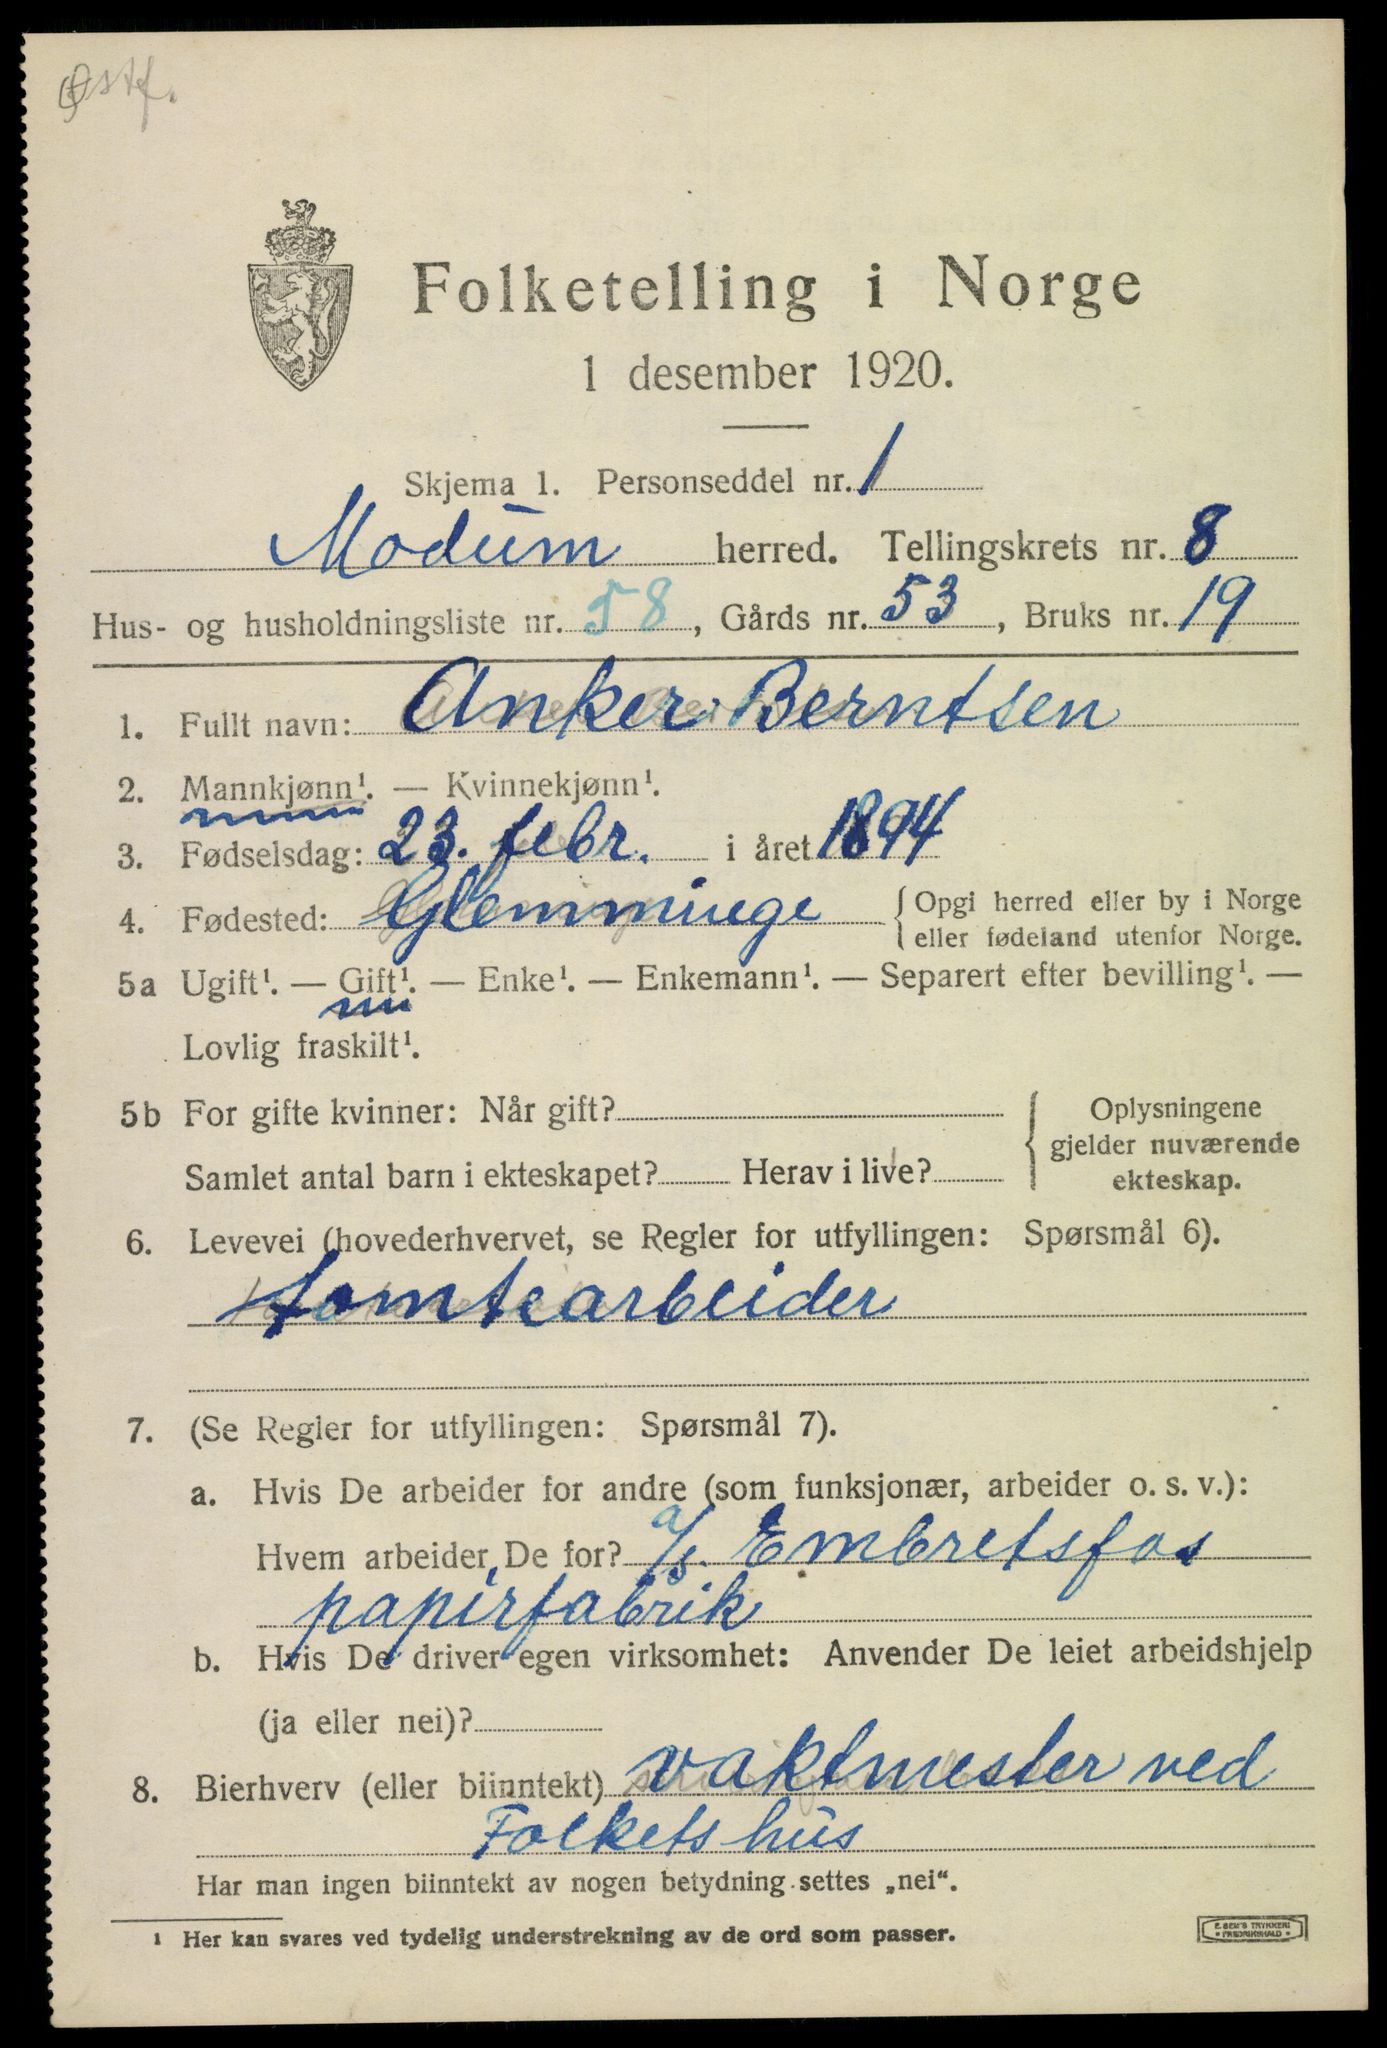 Østf.
Folketelling i Norge
1 desember 1920.
Skjema 1. Personseddel nr. 1
Modum herred. Tellingskrets nr. 8
Hus- og husholdningsliste nr. 58, Gårds nr. 53, Bruks nr. 19
1. Fullt navn: Anker Berntsen
2. Mannkjønn¹. — Kvinnekjønn¹.
3. Fødselsdag: 23. febr. i året 1894
4. Fødested: Glemminge { Opgi herred eller by i Norge
eller fødeland utenfor Norge.
5a Ugift¹. — Gift¹. — Enke¹. — Enkemann¹. — Separert efter bevilling¹. —
Lovlig fraskilt¹.
5b For gifte kvinner: Når gift? { Oplysningene
gjelder nuværende
Samlet antal barn i ekteskapet? Herav i live? ekteskap.
6. Levevei (hovederhvervet, se Regler for utfyllingen: Spørsmål 6).
tomtearbeider
7. (Se Regler for utfyllingen: Spørsmål 7).
a. Hvis De arbeider for andre (som funksjonær, arbeider o. s. v.):
Hvem arbeider De for? a/s. Embretsfos
papirfabrik
b. Hvis De driver egen virksomhet: Anvender De leiet arbeidshjelp
(ja eller nei)?
8. Bierhverv (eller biinntekt) vaktmester ved
Folkets hus
Har man ingen biinntekt av nogen betydning settes „nei“.
¹ Her kan svares ved tydelig understrekning av de ord som passer.
E. SEM'S TRYKKERI
• FREDRIKSHALD •